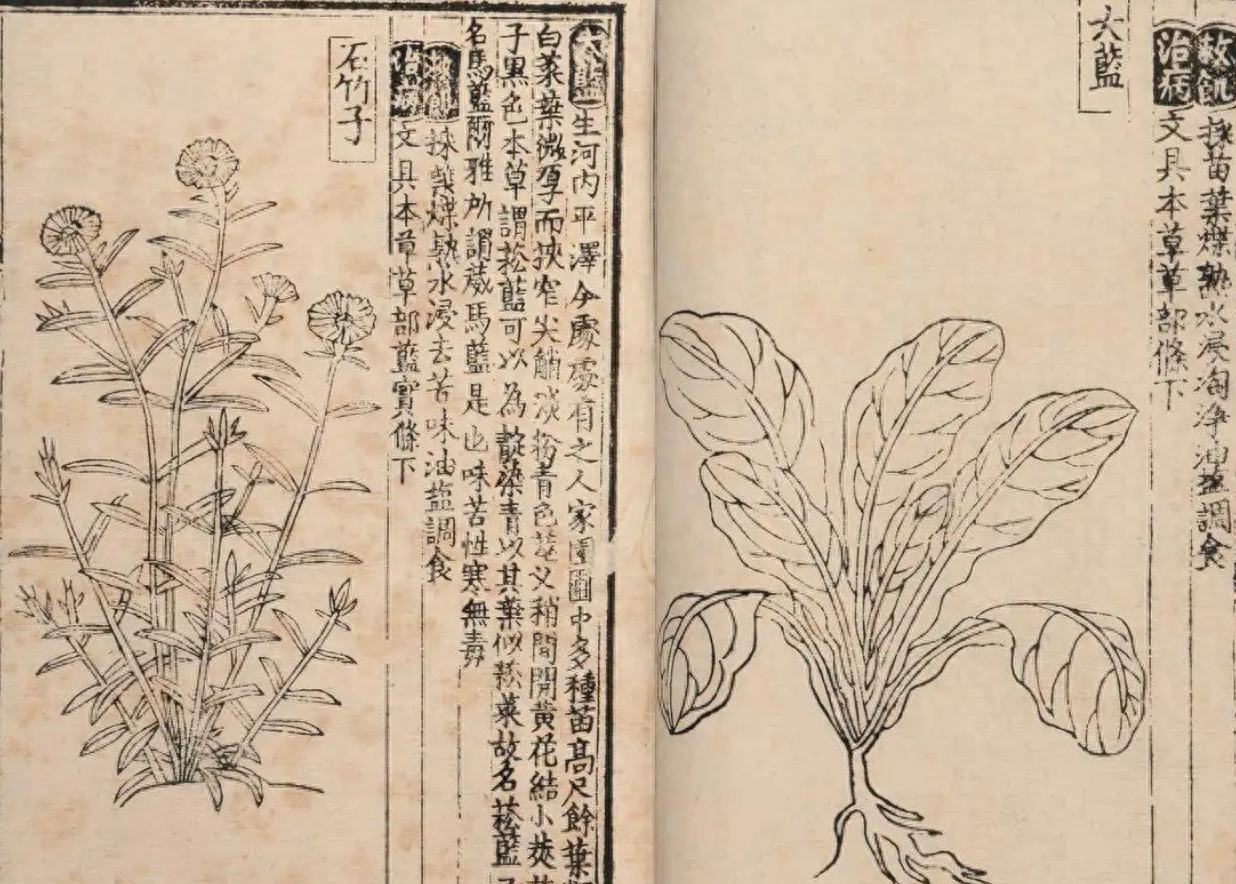 救飢採苗葉煠熟水浸淘淨油塩調食
治病文具本草草部條下
大藍
大藍生河內平澤今處處有之人家園圃中多種苗高尺餘葉
白菜葉微厚而狹窄尖艄淡粉青色莖叉稍間開黃花結小莢
子黑色本草謂菘藍可以為靛染青以其葉似菘菜故名菘藍
名馬藍爾雅所謂葴馬藍是也味苦性寒無毒
救飢採葉煠熟水浸去苦味油塩調食
治病文具本草草部藍實條下
石竹子